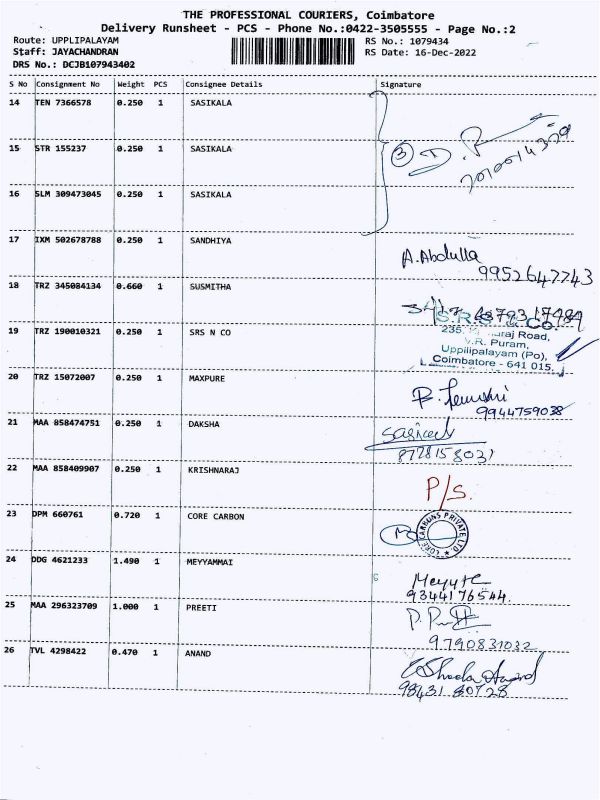 THE PROFESSIONAL COURIERS, Coimbatore
Delivery Runsheet - PCS - Phone No.:0422-3505555 - Page No.:2
Route: UPPLIPALAYAM
RS No.: 1079434
Staff: JAYACHANDRAN
RS Date: 16-Dec-2022
DRS No.: DCJB107943402
S No Consignment No Weight PCS Consignee Details Signature
14 TEN 7366578 0.250 1 SASIKALA
15 STR 155237 0.250 1 SASIKALA
3
16 SLM 309473045 0.250 1 SASIKALA
17 IXM 502678788 0.250 1 SANDHIYA
A. Abdulla
9952647743
18 TRZ 345084134 0.660 1 SUSMITHA
S.R.S. & Co.
19 TRZ 190010321 0.250 1 SRS N CO
235, raj Road,
V.R. Puram,
Uppilipalayam (Po),
Coimbatore - 641 015.
20 TRZ 15072007 0.250 1 MAXPURE
9944759038
21 MAA 858474751 0.250 1 DAKSHA
8728158031
22 MAA 858409907 0.250 1 KRISHNARAJ
P/S.
23 DPM 660761 0.720 1 CORE CARBON
CORE CARBONS PRIVATE LTD.
24 DDG 4621233 1.490 1 MEYYAMMAI
9344176544.
25 MAA 296323709 1.000 1 PREETI
9790831032
26 TVL 4298422 0.470 1 ANAND
98431 80728